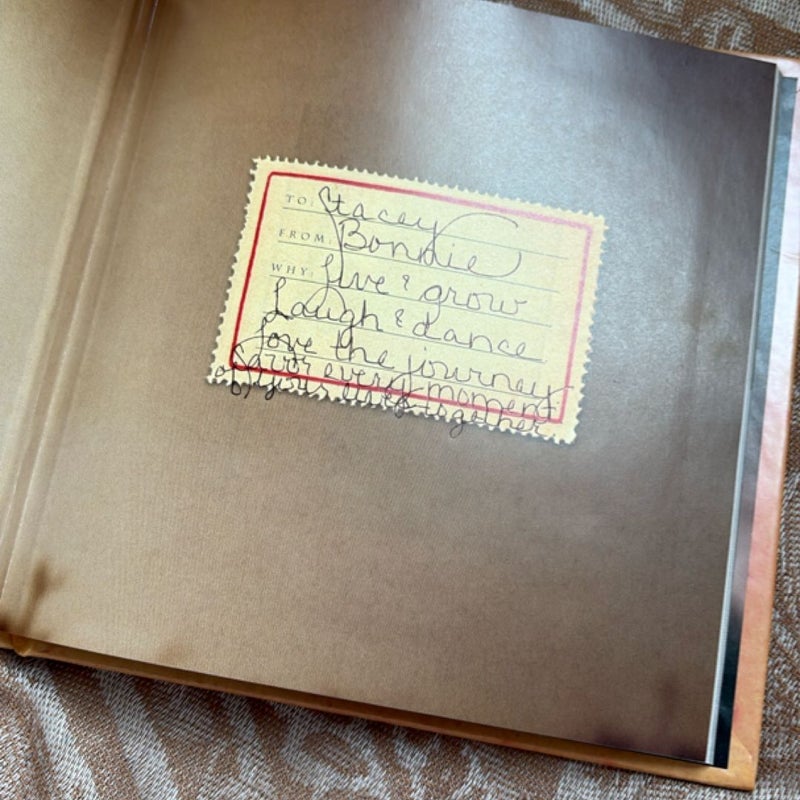 TO: Stacey
FROM: Bonnie
WHY: Live & grow
Laugh & dance
Love the journey
every moment
of your lives together